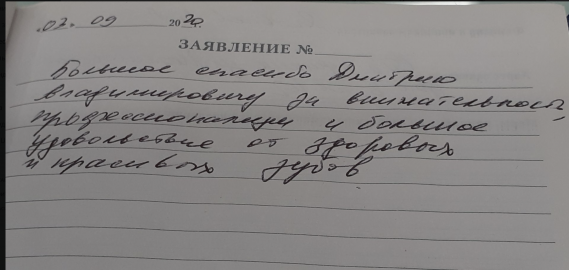 02. 09 2020.
ЗАЯВЛЕНИЕ №
Большое спасибо Дмитрию
Владимировичу за внимательность,
профессионализм и большое
удовольствие от здоровых
и красивых зубов